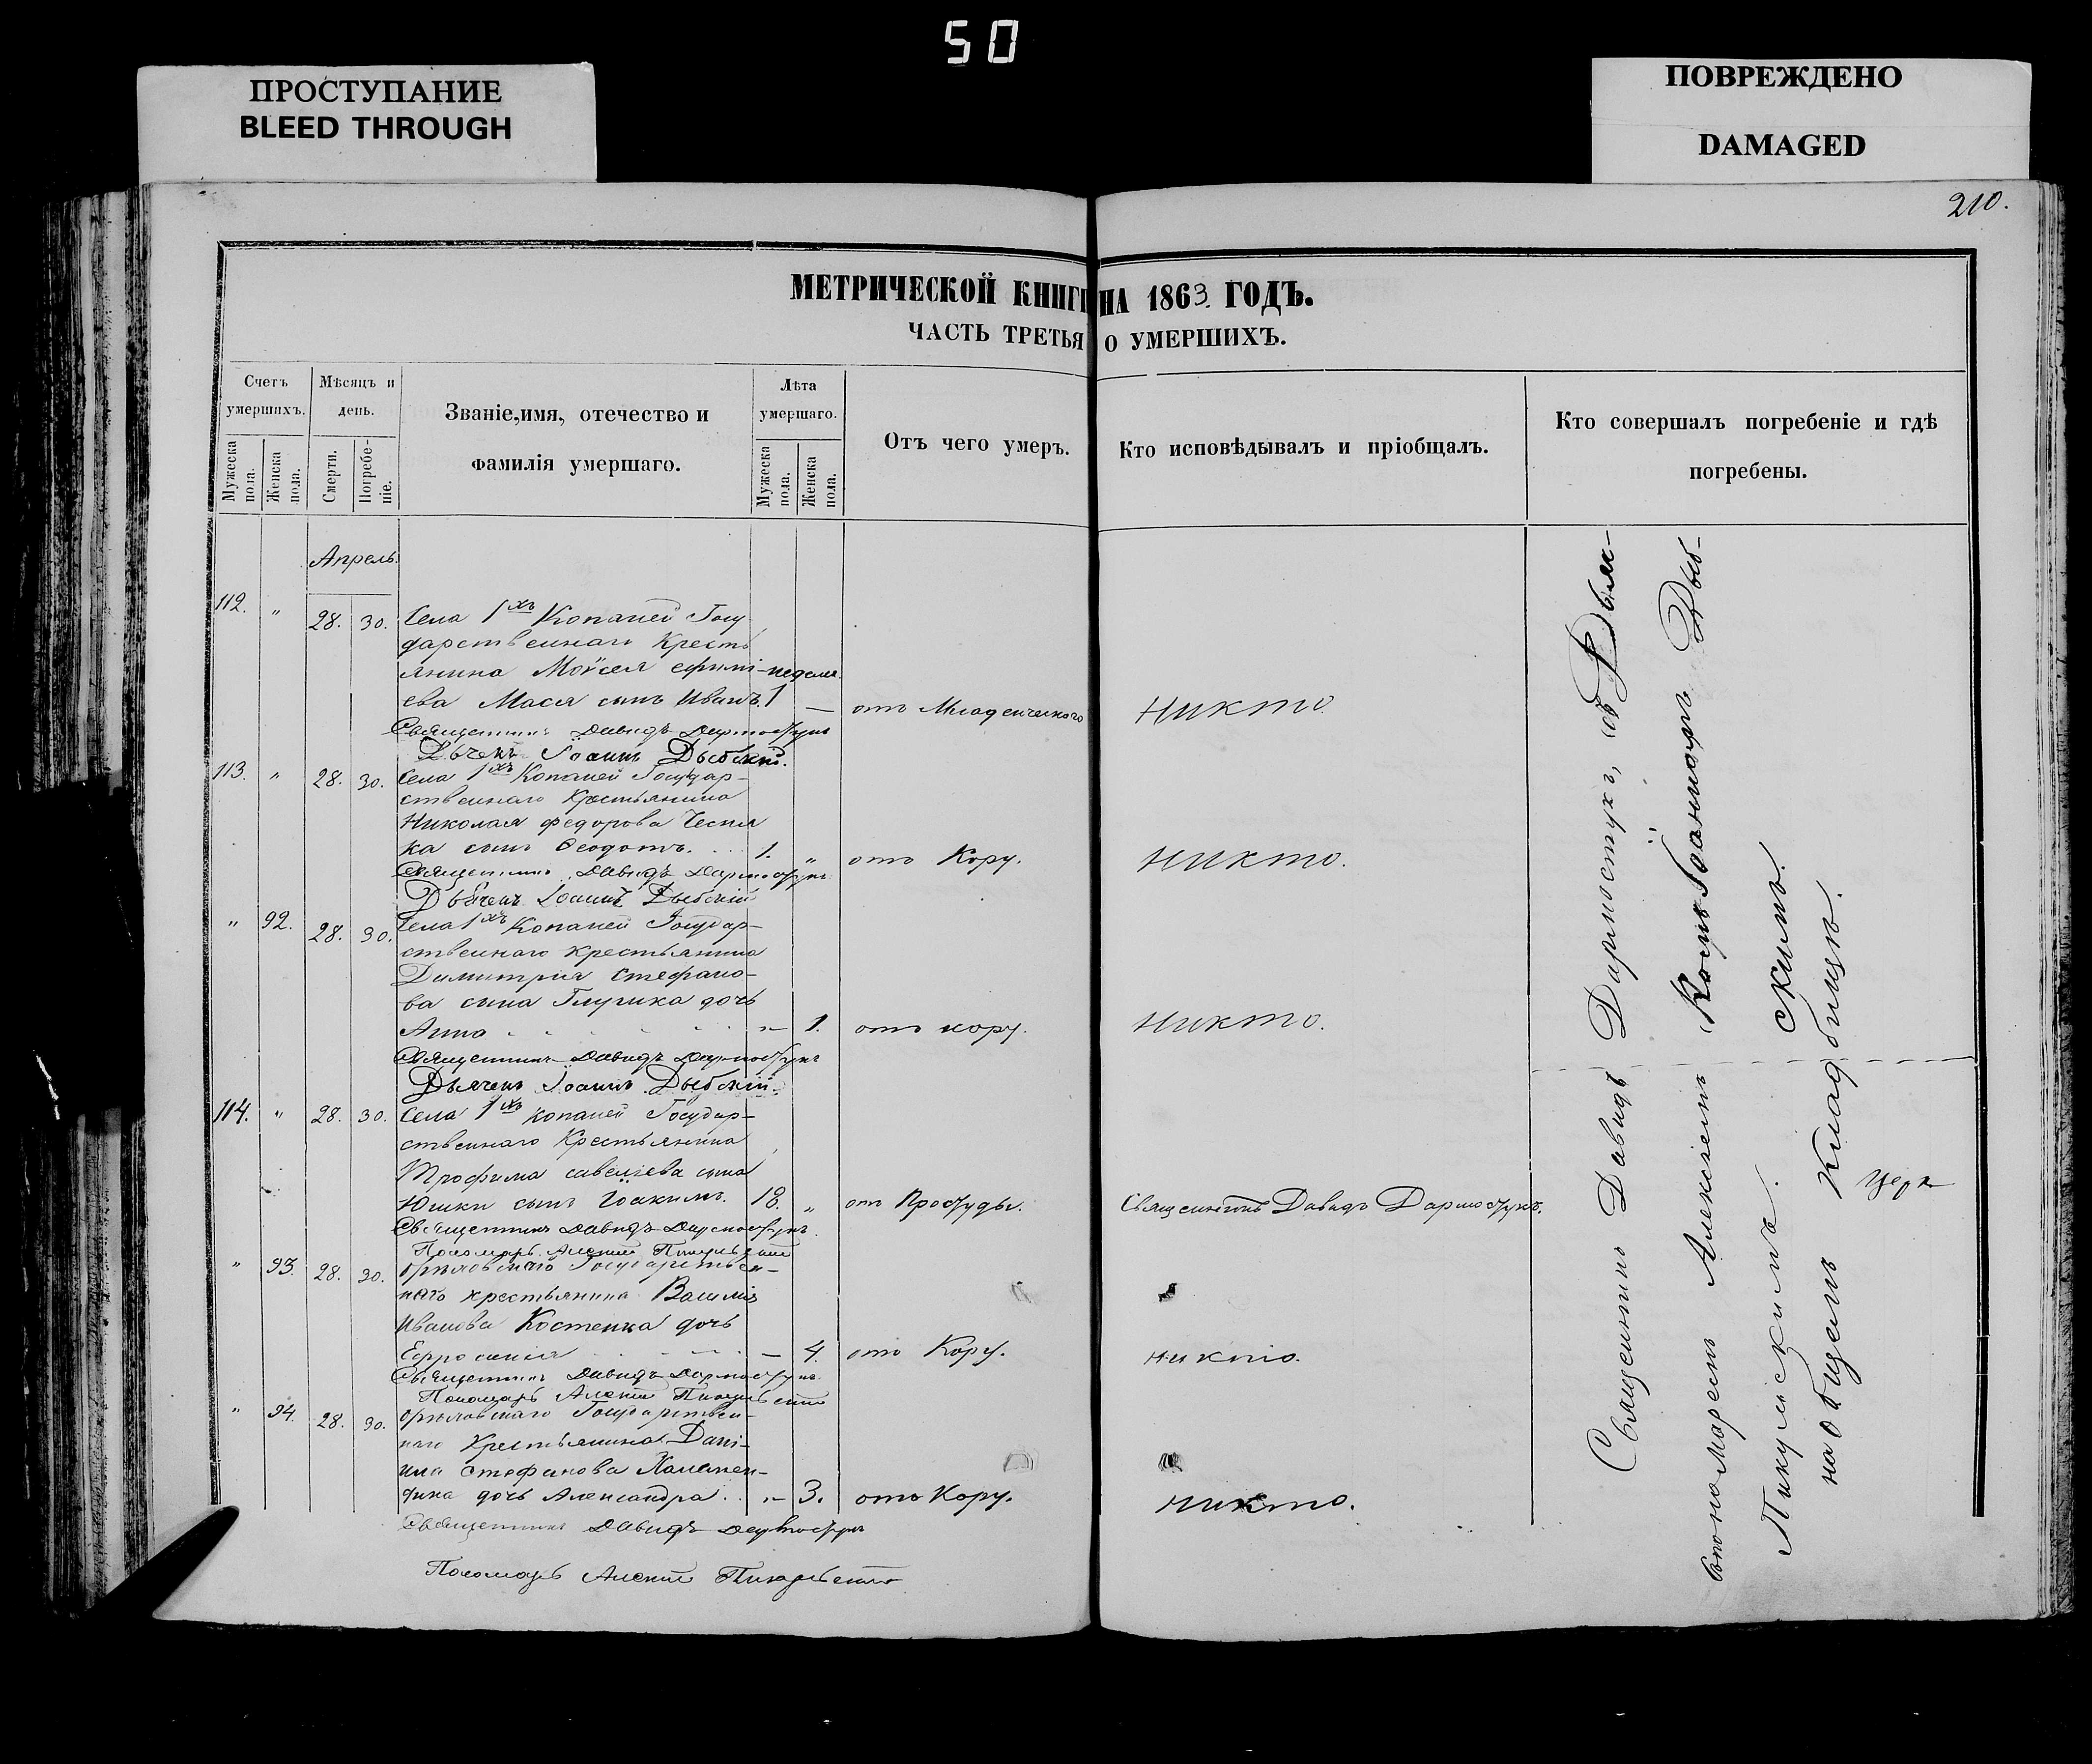 50
ПРОСТУПАНИЕ
BLEED THROUGH
ПОВРЕЖДЕНО
DAMAGED
210.
МЕТРИЧЕСКОЙ КНИГИ НА 1863 ГОДЪ.
ЧАСТЬ ТРЕТЬЯ О УМЕРШИХЪ.
Счетъ умершихъ.
Мужеска пола.
Женска пола.
Мѣсяцъ и день.
Смерти.
Погребеніе.
Званіе, имя, отечество и
фамилія умершаго.
Лѣта умершаго.
Мужеска пола.
Женска пола.
Отъ чего умеръ.
Кто исповѣдывалъ и пріобщалъ.
Кто совершалъ погребеніе и гдѣ
погребены.
Апрель.
112. " 28. 30. Села 1хъ Копаней Госу
дарственнаго Кресть
янина Моѵсея Ефимі- недели
ева Мася сынъ Иванъ. 1 — отъ Младенческаго Никто.
Священникъ Давидъ Дармостукъ
Дьячекъ Іоаннъ Дыбскій.
113. " 28. 30. Села 1хъ Копаней Государ-
ственнаго Крестьянина
Николая Федорова Чесно
ка сынъ Феодотъ. 1. " отъ Кору. Никто.
Священникъ Давидъ Дармостукъ
Дьячекъ Іоаннъ Дыбскій
" 92. 28. 30. Села 1хъ Копаней Государ-
ственнаго крестьянина
Димитрія Стефано-
ва сына дочь
Анна " 1. отъ кору. Никто.
Священникъ Давидъ Дармостукъ
Дьячекъ Іоаннъ Дыбскій.
114. " 28. 30. Села 1хъ Копаней Государ-
ственнаго Крестьянина
Трофима Савелиева сына
Юшки сынъ Іоакимъ. 18. " отъ Простуды. Священникъ Давидъ Дармостукъ.
Священникъ Давидъ Дармостукъ.
Пономарь Алексій Пикульскій
" 93. 28. 30. Орловскаго Государствен-
наго крестьянина Василія
Иванова Костенка дочь
Ефросинія — 4. отъ Кору. никто.
Священникъ Давидъ Дармостукъ
Пономарь Алексій Пикульскій
" 94. 28. 30. Орловскаго Государствен-
наго Крестьянина Дані-
ила Стефанова
дочь Александра. " 3. отъ Кору. никто.
Священникъ Давидъ Дармостукъ
Пономарь Алексій Пикульскій
Священникъ Давидъ Дармостукъ, съ Дьяч-
Іоанномъ Дыб-
скимъ.
Пономаремъ Алексіемъ
Пикульскимъ.
на общемъ кладбищѣ.